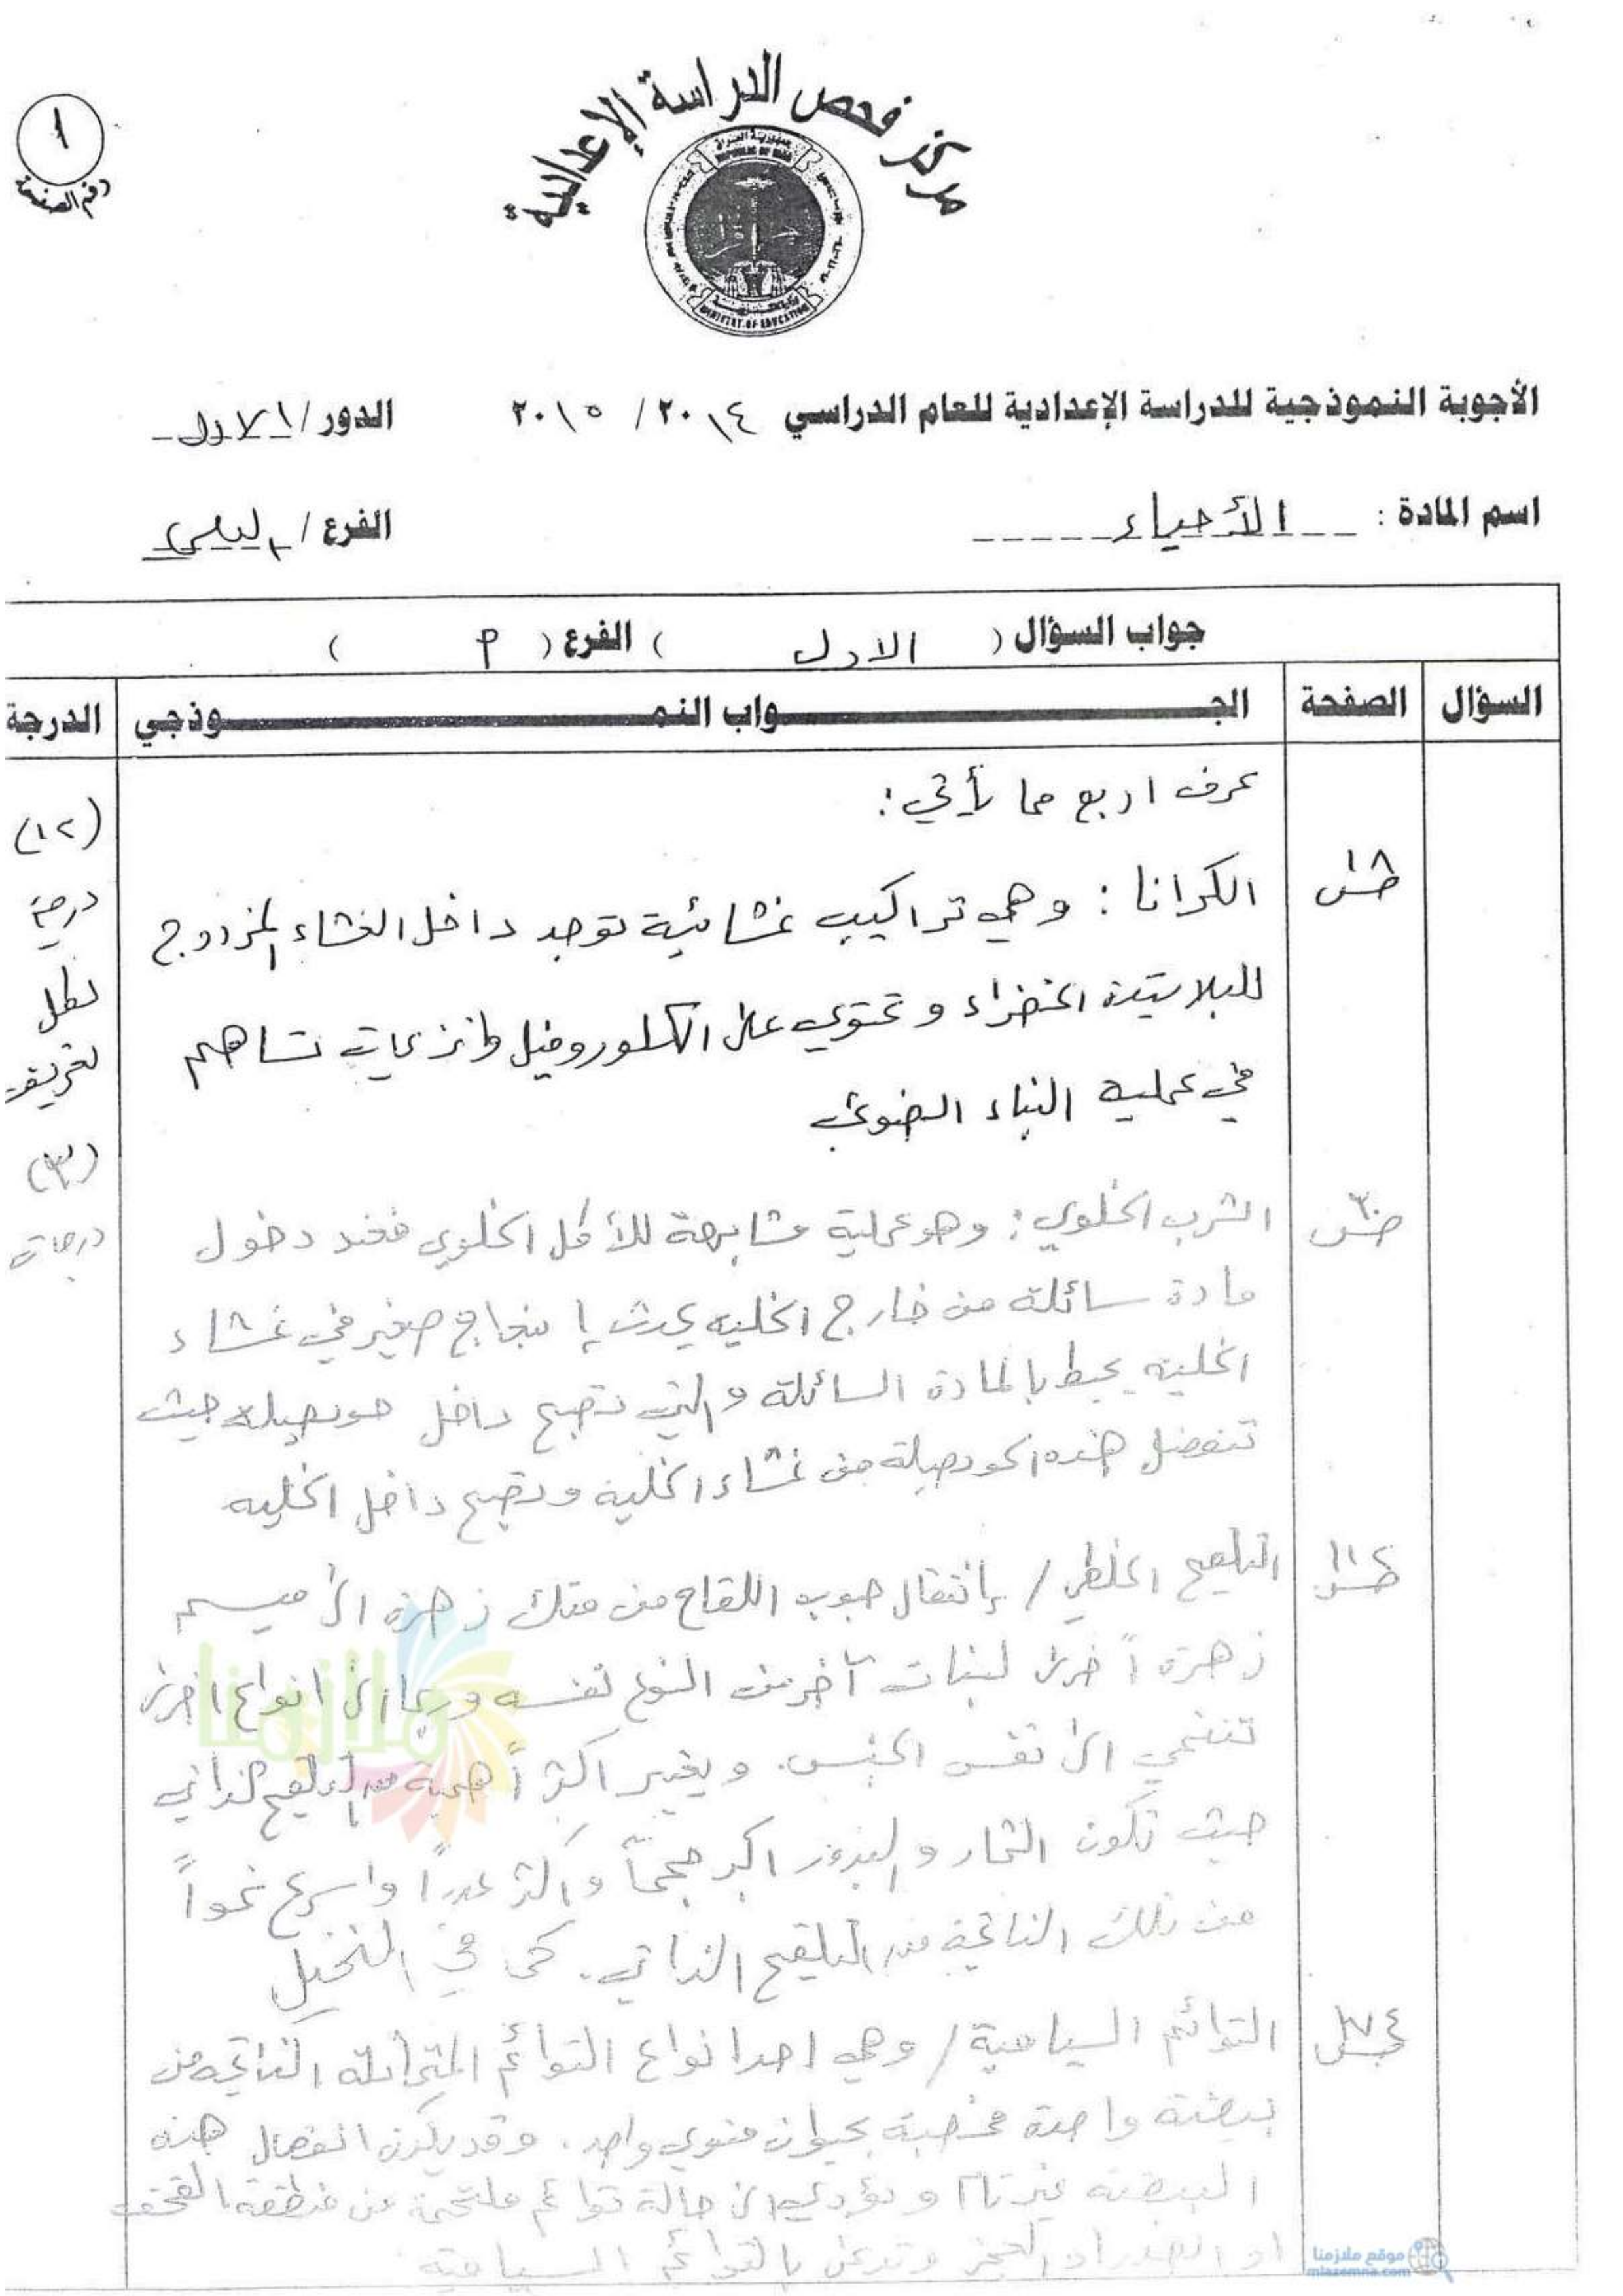 مركز فحص الدراسة الإعدادية
جمهورية العراق
REPUBLIC OF IRAQ
MINISTRY OF EDUCATION
١
رقم الصفحة
الأجوبة النموذجية للدراسة الإعدادية للعام الدراسي ٢٠١٤ / ٢٠١٥ الدور / الاول
اسم المادة : الأحياء الفرع /
جواب السؤال ( الاول ) الفرع ( م )
السؤال الصفحة الجـــواب النمـــوذجي الدرجة
عرف اربع مما يأتي :
(١٢)
درجة
لكل
تعريف
(٣)
درجات
ص١٨
الكرانا : وهي تراكيب غشائية توجد داخل الغشاء المزدوج
للبلاستيدة الخضراء وتحتوي على الكلوروفيل وانزيمات تساهم
في عملية البناء الضوئي
ص٣٠
الشرب الخلوي : وهو عملية مشابهة للأكل الخلوي فعند دخول
مادة سائلة من خارج الخلية يحدث إنبعاج صغير في غشاء
الخلية يحيط بالمادة السائلة والتي تصبح داخل حويصلة حيث
تنفصل هذه الحويصلة من غشاء الخلية وتصبح داخل الخلية
ص١١٢
التلقيح الخلطي / إنتقال حبوب اللقاح من متك زهرة الى ميسم
زهرة أخرى لنبات آخر من النوع نفسه وربما الى انواع اخرى
تنتمي الى نفس الجنس. ويعتبر اكثر أهمية من التلقيح الذاتي
حيث تكون الثمار والبذور اكبر حجماً واكثر عدداً واسرع نمواً
من تلك الناتجة من التلقيح الذاتي. كما في النخيل
ص١٧٤
التوائم السيامية / وهي احد انواع التوائم المتماثلة الناتجة من
بيضة واحدة مخصبة بحيوان منوي واحد. وقد يكون انفصال هذه
البيضة غير تام ويؤدي الى حالة توائم ملتحمة من منطقة القحف
او الصدر او العجز وتدعى بالتوائم السيامية
ملازمنا
موقع ملازمنا
mlazemna.com